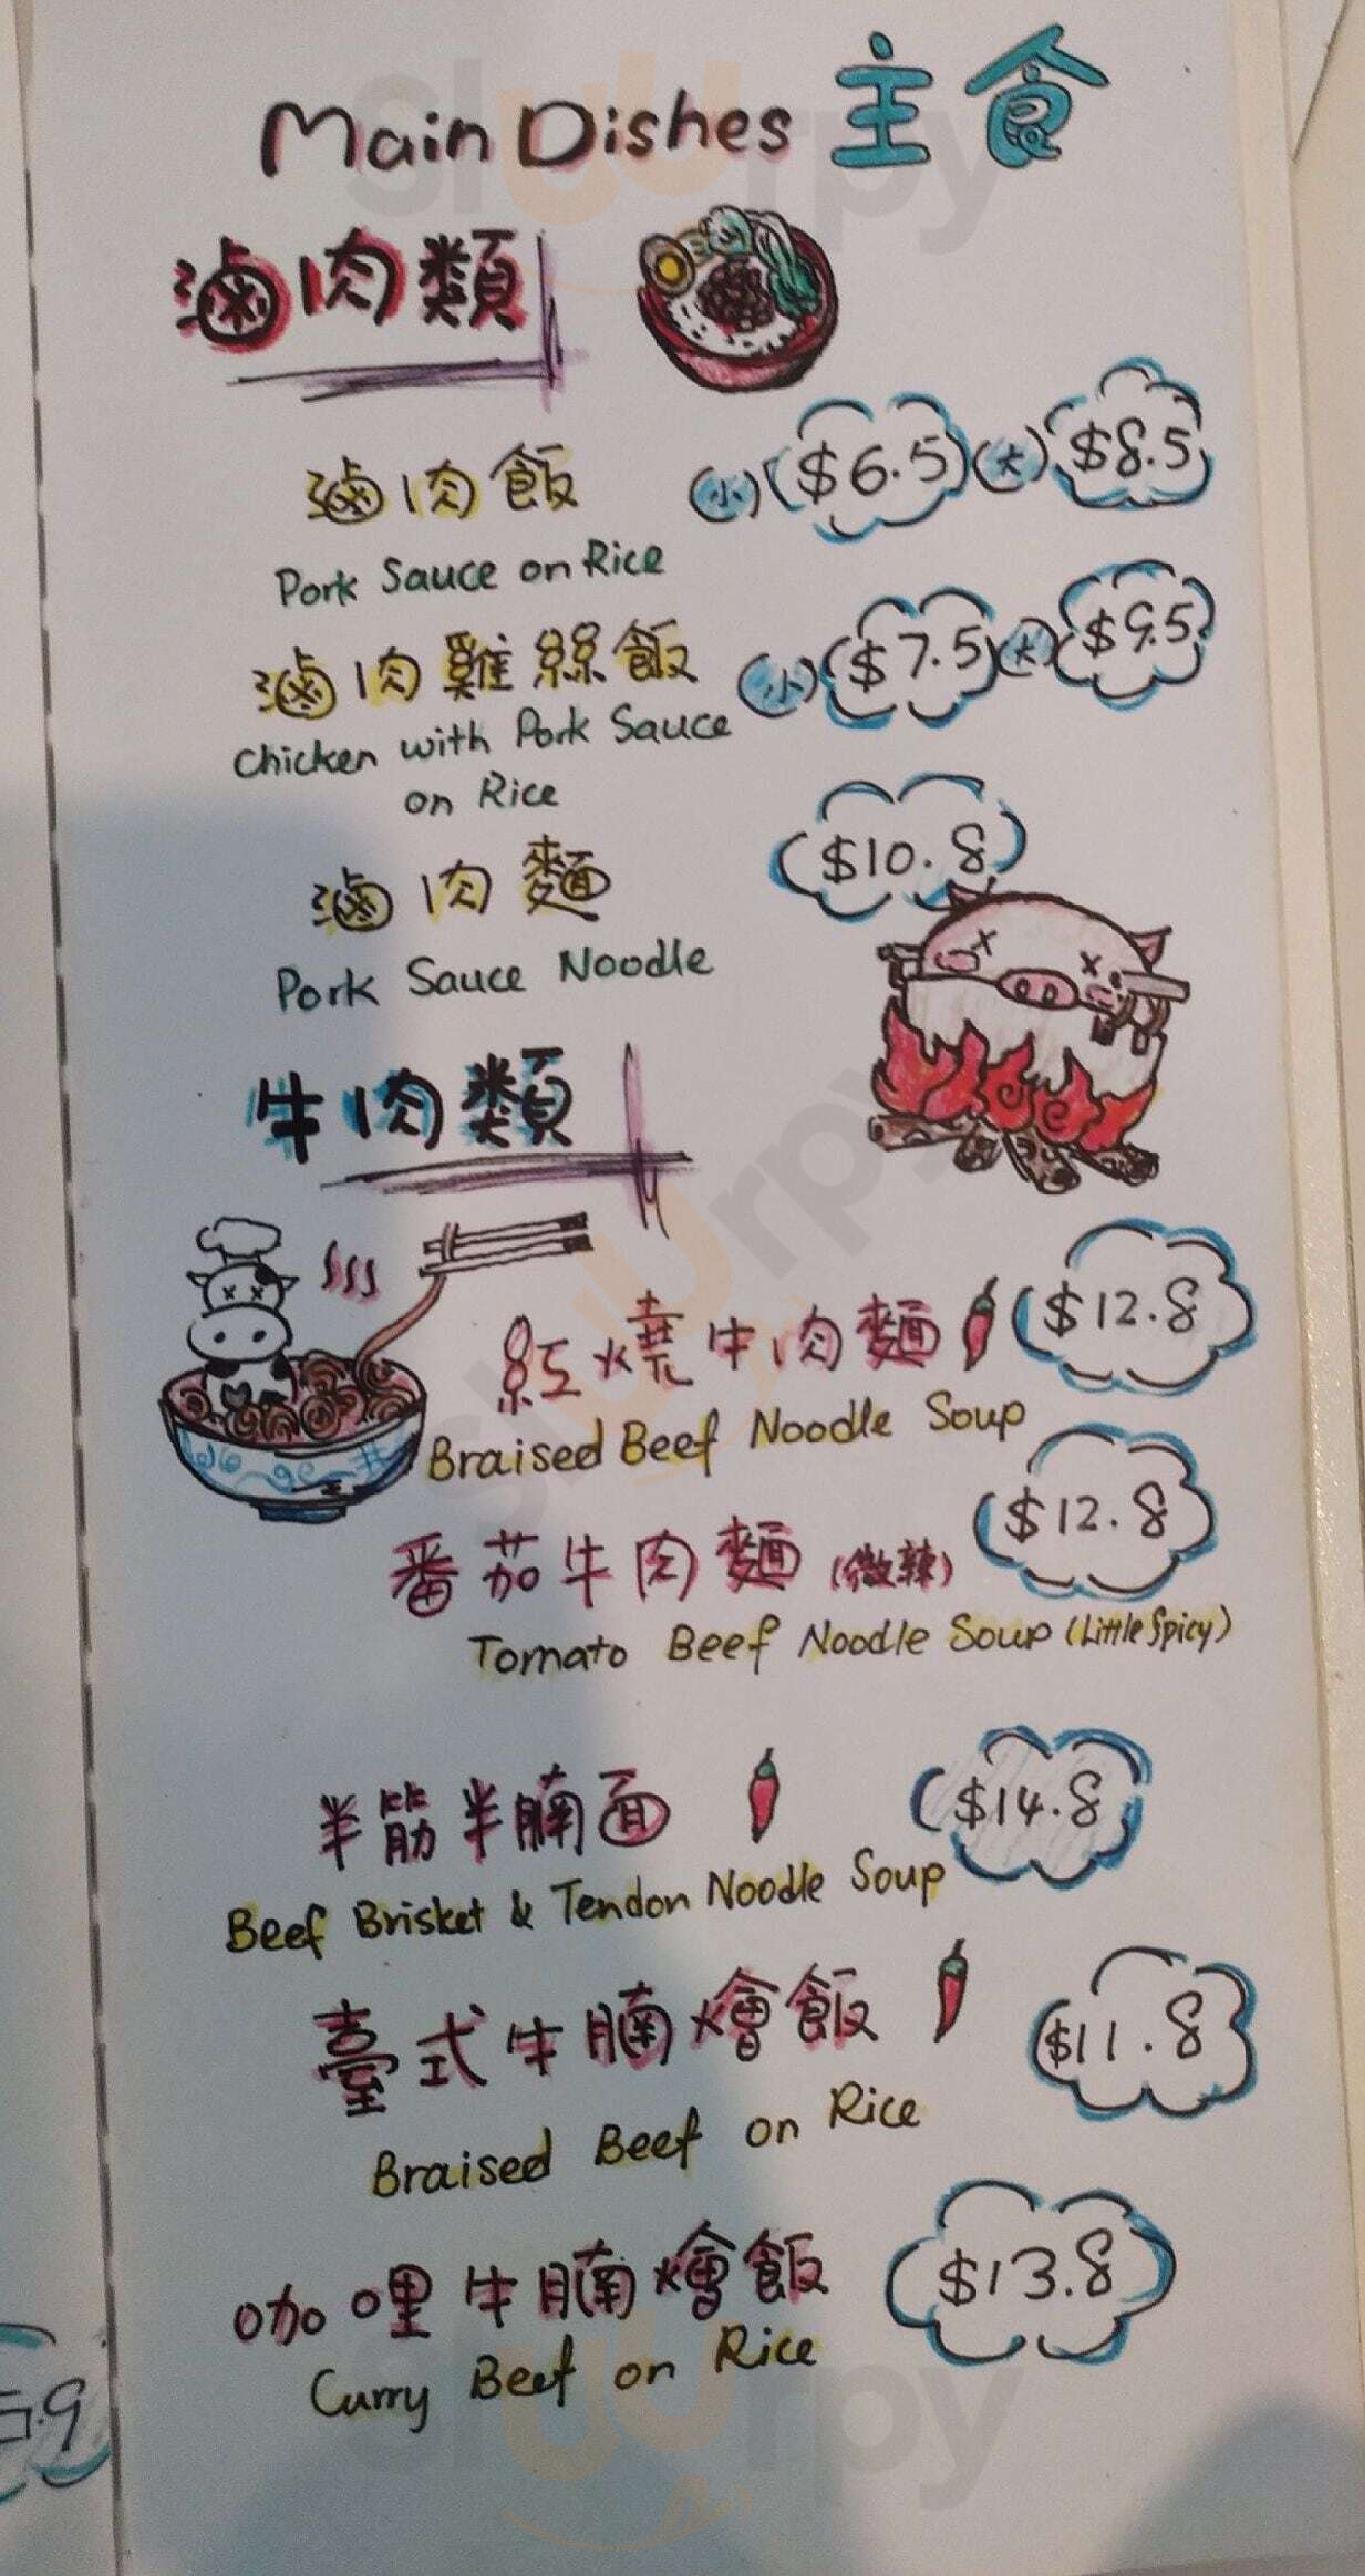 Main Dishes 主食
滷肉類
滷肉飯 (小) $6.5 (大) $8.5
Pork Sauce on Rice
滷肉雞絲飯 (小) $7.5 (大) $9.5
Chicken with Pork Sauce
on Rice
滷肉麵 $10.8
Pork Sauce Noodle
牛肉類
紅燒牛肉麵 $12.8
Braised Beef Noodle Soup
番茄牛肉麵 (微辣) $12.8
Tomato Beef Noodle Soup (Little Spicy)
半筋半腩面 $14.8
Beef Brisket & Tendon Noodle Soup
臺式牛腩燴飯 $11.8
Braised Beef on Rice
咖哩牛腩燴飯 $13.8
Curry Beef on Rice
sluurpy
sluurpy
sluurpy